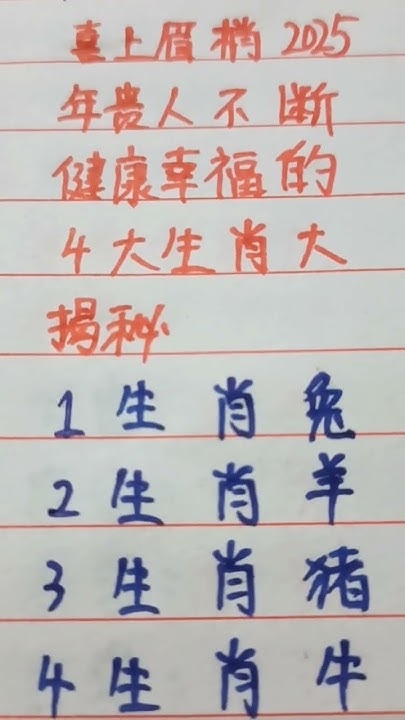 喜上眉梢2025
年贵人不断
健康幸福的
4大生肖大
揭秘
1生肖兔
2生肖羊
3生肖猪
4生肖牛